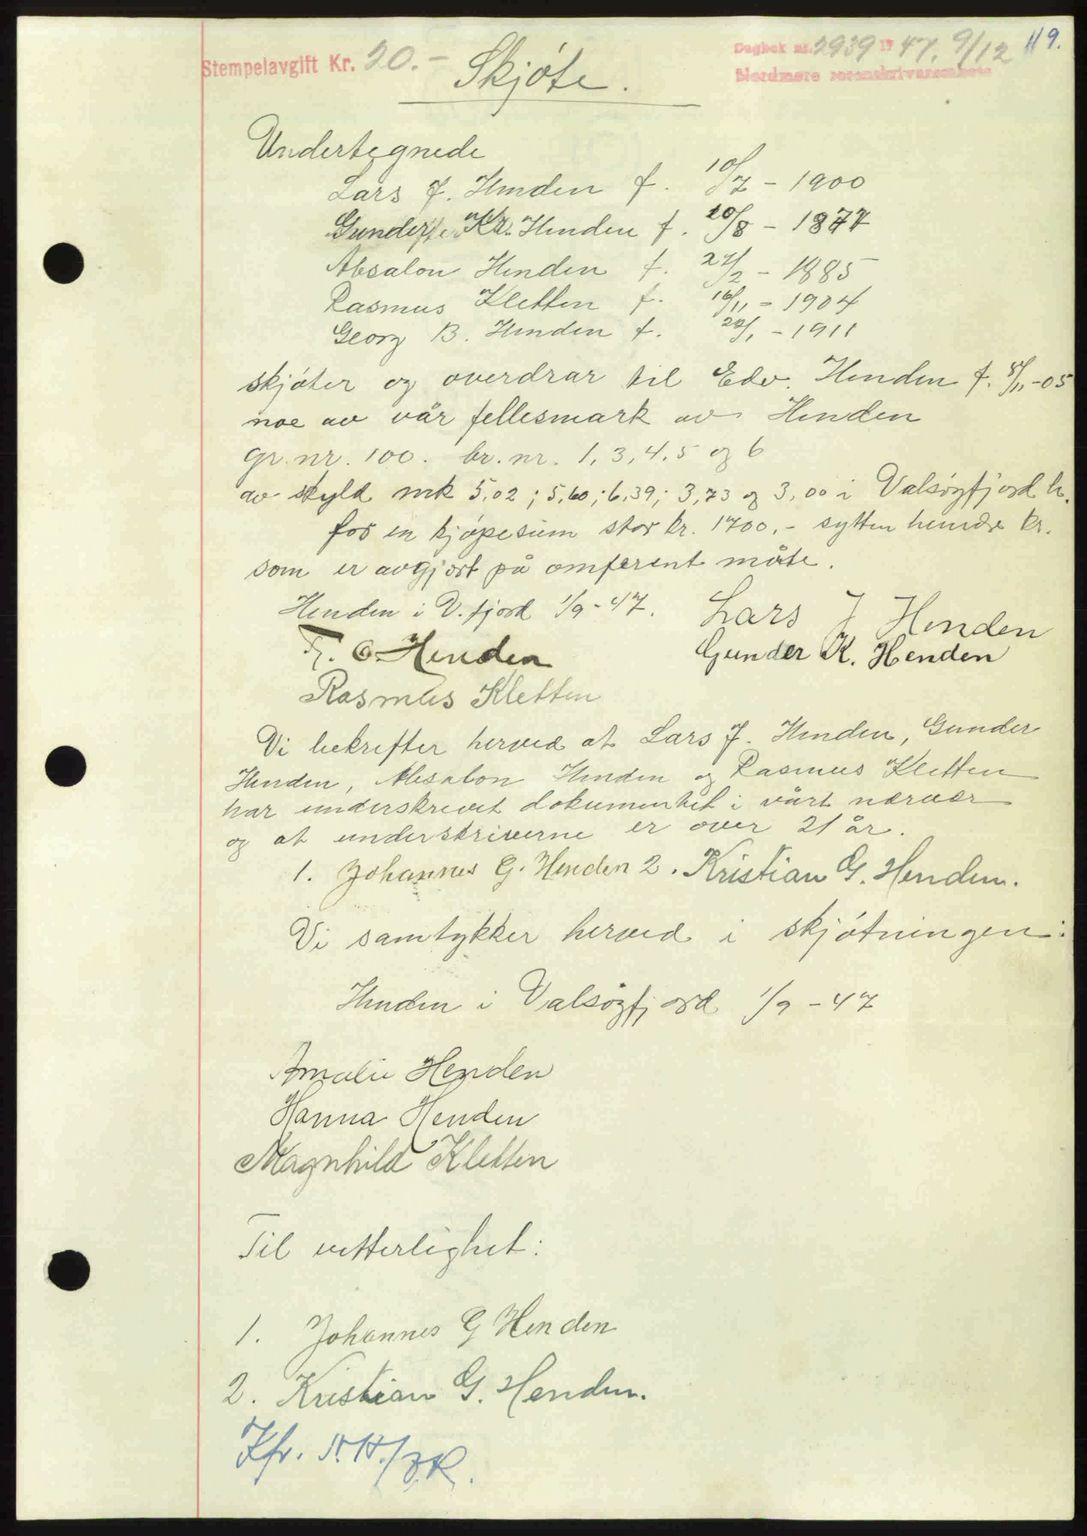 Stempelavgift Kr. 20.- Skjøte. Dagbok nr. 2939 19 47. 9/12 119.
Nordmøre sorenskriverembete
Undertegnede
Lars J. Henden f. 10/7 - 1900
Gunder Kr. Henden f. 20/8 - 1877
Absalon Henden f. 27/2 - 1885
Rasmus Kletten f. 16/11 - 1904
Georg B. Henden f. 22/1 - 1911
skjøter og overdrar til Edv. Henden f. 8/11-05
noe av vår fellesmark av Henden
gr. nr. 100. br. nr. 1, 3, 4, 5 og 6
av skyld mk 5,02; 5,60; 6,39; 3,73 og 3,00 i Valsøyfjord h.
for en kjøpesum stor kr. 1700.- sytten hundre kr.
som er avgjort på omforent måte.
Henden i V. fjord 1/9-47. Lars J Henden
Henden Gunder K. Henden
Rasmus Kletten
Vi bekrefter herved at Lars J. Henden, Gunder
Henden, Absalon Henden og Rasmus Kletten
har underskrevet dokumentet i vårt nærvær
og at underskriverne er over 21 år.
1. Johannes G. Henden 2. Kristian G. Henden.
Vi samtykker herved i skjøtningen:
Henden i Valsøyfjord 1/9-47
Amalie Henden
Hanna Henden
Magnhild Kletten
Til vitterlighet:
1. Johannes G Henden
2. Kristian G. Henden.
Kfr.